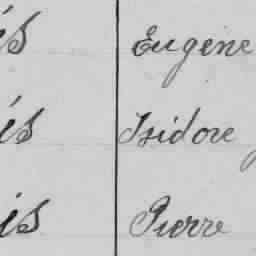 és Eugène
és Isidore
és Pierre